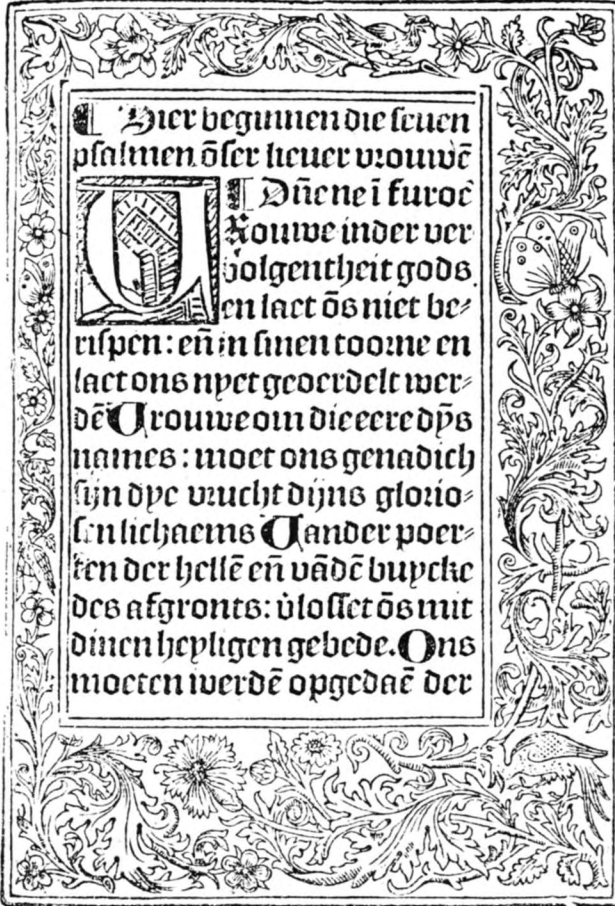 ¶ Hier beginnen die seuen
psalmen õser lieuer vrouwẽ
V ¶ Dñe ne ĩ furoẽ
Rouwe in der ver
bolgentheit gods
en laet õs niet be⸗
rispen: eñ in sinen toorne en
laet ons nyet geoerdelt wer⸗
dẽ Vrouwe om die eere dỹs
names: moet ons genadich
sijn dye vrucht dijns glorio⸗
sen lichaems Vander poer⸗
ten der hellẽ eñ vãdẽ buycke
des afgronts: v̉losset õs mit
dinen heyligen gebede. Ons
moeten werdẽ opgedaẽ der